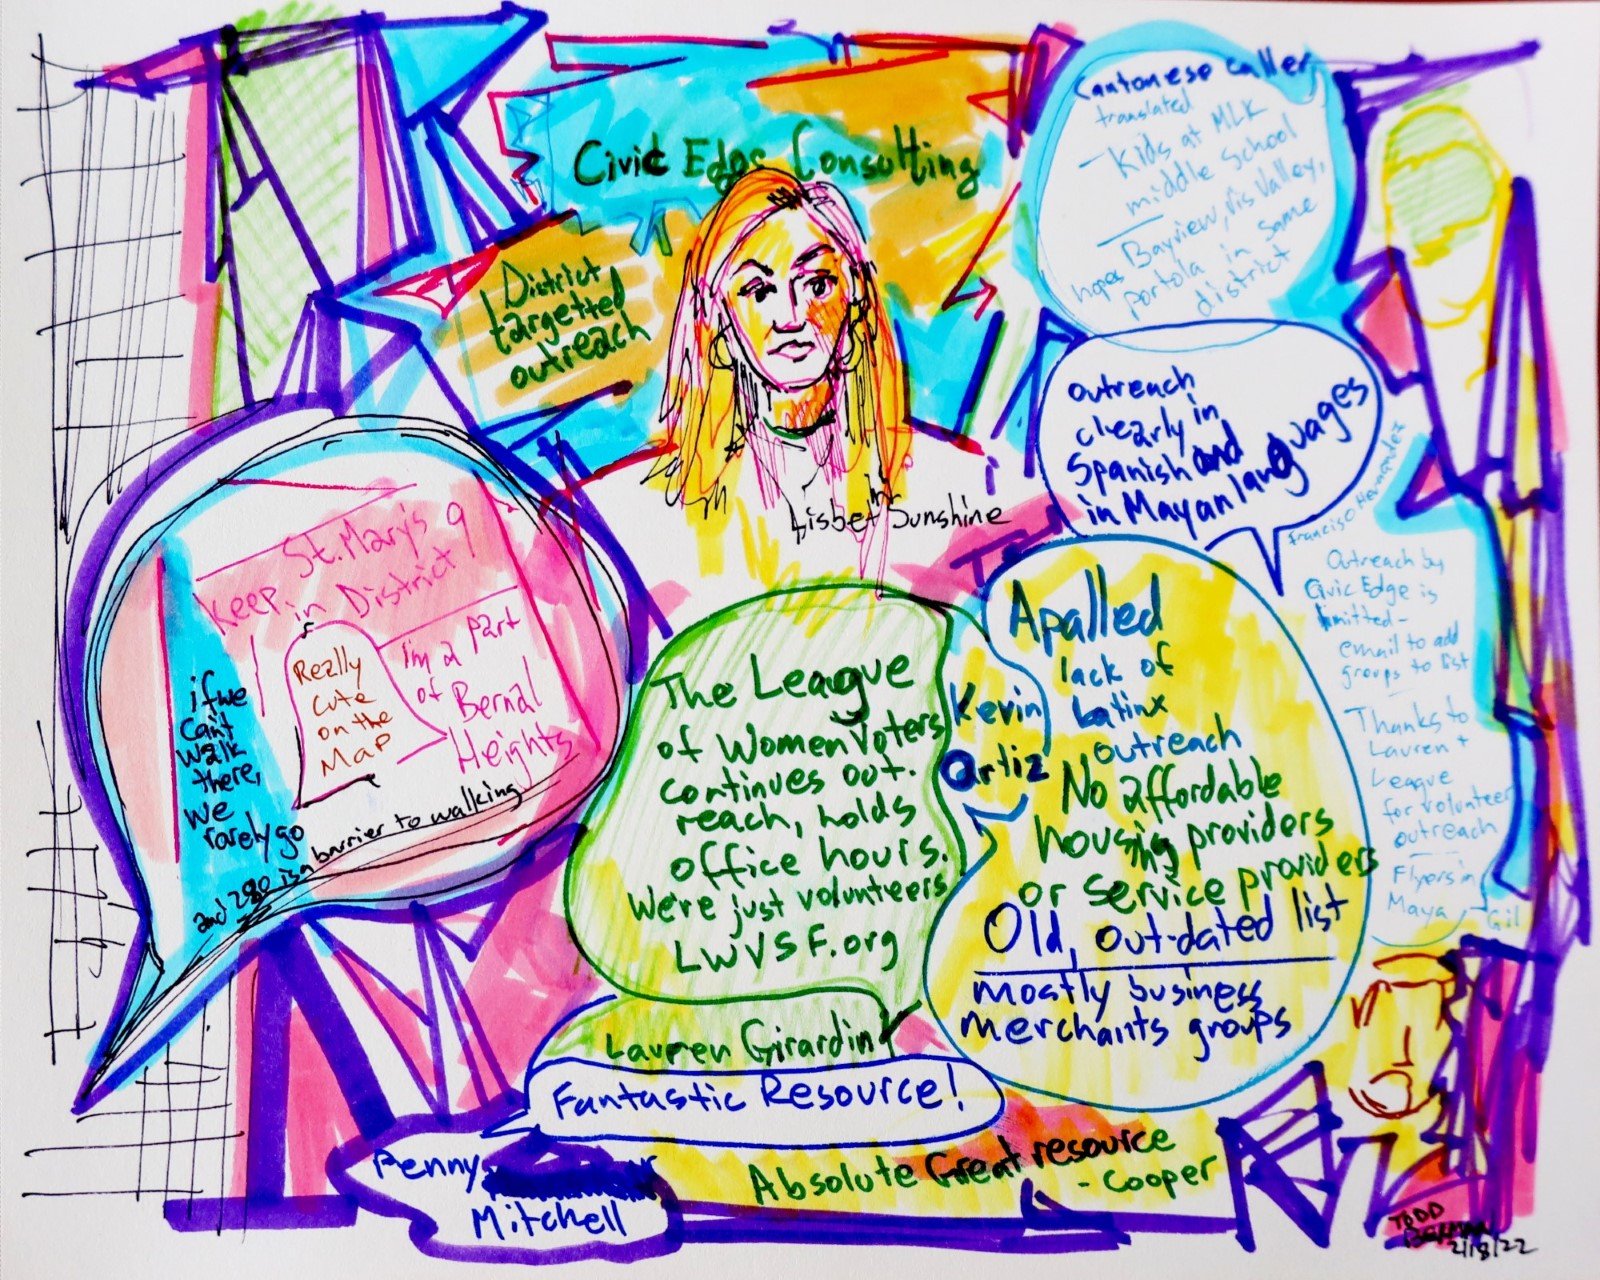 Civic Edge Consulting
District
targetted
outreach
Lisbet Sunshine
Cantonese Caller
translated
- Kids at MLK
middle School
hopes Bayview, Vis Valley,
portola in same
district
outreach
clearly in
Spanish and
in Mayan languages
Francisco Hernandez
Outreach by
Civic Edge is
limitted-
email to add
groups to list
Thanks to
Lauren +
League
for volunteer
outreach
Flyers in
Maya - Gil
Keep St. Mary's
in District 9
I'm a part
of
Bernal
Heights
Really
cute
on the
Map
if we
can't
walk
there,
we
rarely go
and 280 is a barrier to walking
The League
of Women Voters
continues out.
reach, holds
office hours.
We're just volunteers
LWVSF.org
Lauren Girardin
Kevin
Ortiz
Apalled
lack of
Latinx
outreach
No affordable
housing providers
or service providers
Old, out-dated list
mostly business
merchants groups
Fantastic Resource!
Penny
Mitchell
Absolute Great resource
- Cooper
TODD
BERMAN
2/18/22